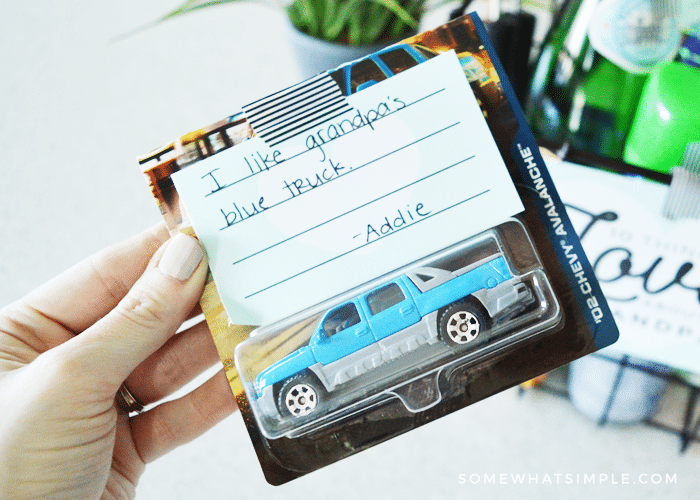 I like grandpa's
blue truck.
-Addie
'02 CHEVY® AVALANCHE™
10 THIN
Love
ANDP
SOMEWHATSIMPLE.COM